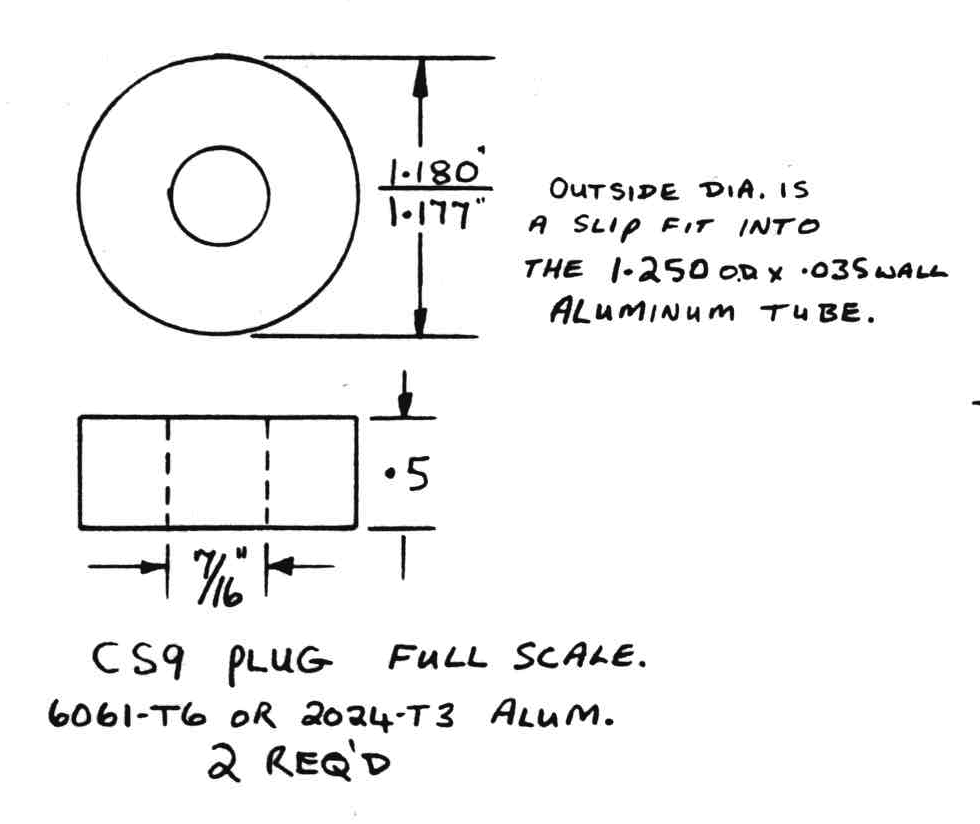 1.180"
1.177"
OUTSIDE DIA. IS
A SLIP FIT INTO
THE 1.250 O.D x .035 WALL
ALUMINUM TUBE.
.5
7/16"
CS9 PLUG FULL SCALE.
6061-T6 OR 2024-T3 ALUM.
2 REQ'D